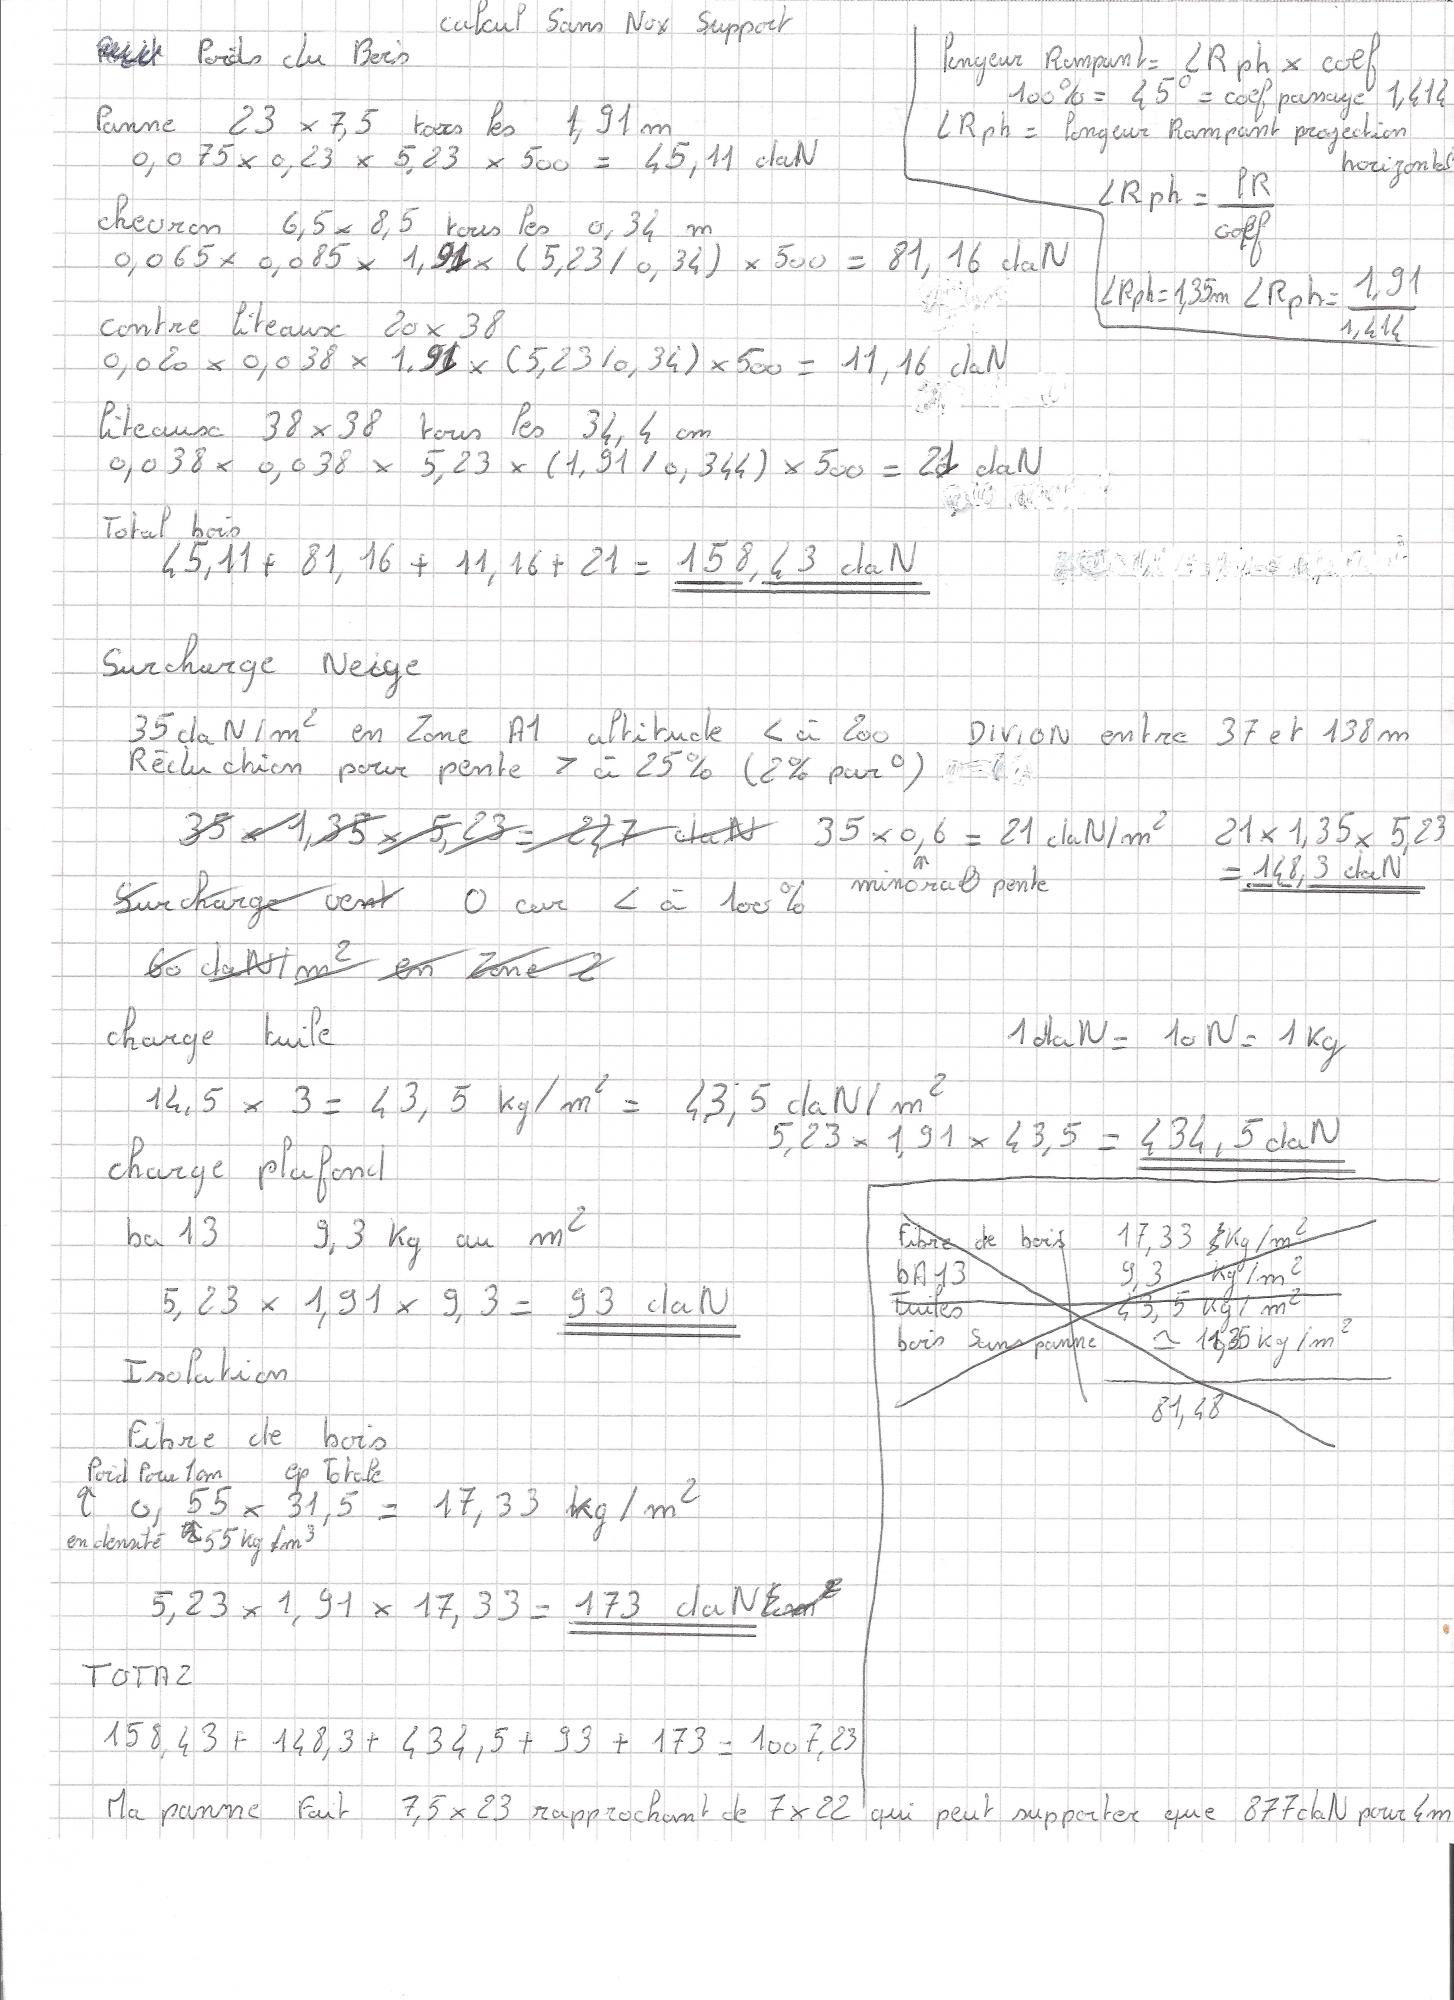 calcul Sans Nox Support
Poids du Bois
Panne 23 x 7,5 tous les 1,91 m
0,075 x 0,23 x 5,23 x 500 = 45,11 daN
chevron 6,5 x 8,5 tous les 0,34 m
0,065 x 0,085 x 1,91 x (5,23/0,34) x 500 = 81,16 daN
contre liteaux 20 x 38
0,020 x 0,038 x 1,91 x (5,23/0,34) x 500 = 11,16 daN
liteaux 38 x 38 tous les 34,4 cm
0,038 x 0,038 x 5,23 x (1,91/0,344) x 500 = 21 daN
Total bois
45,11 + 81,16 + 11,16 + 21 = 158,43 daN
longeur Rampant = LRph x coef
100% = 45° = coef passage 1,414
LRph = longeur Rampant projection
horizontal
LRph = lR
coef
LRph = 1,35m LRph = 1,91
1,414
Surcharge Neige
35 daN/m² en Zone A1 altitude < à 200 DIVION entre 37 et 138m
Réduction pour pente > à 25% (2% par°)
35 x 1,35 x 5,23 = 247 daN 35 x 0,6 = 21 daN/m² 21 x 1,35 x 5,23
minorat° pente = 148,3 daN
Surcharge vent 0 car < à 100%
60 daN/m² en Zone 2
charge tuile 1 daN = 10 N = 1 Kg
14,5 x 3 = 43,5 kg/m² = 43,5 daN/m²
5,23 x 1,91 x 43,5 = 434,5 daN
charge plafond
ba 13 9,3 Kg au m²
5,23 x 1,91 x 9,3 = 93 daN
Fibre de bois 17,33 Kg/m²
bA13 9,3 Kg/m²
tuiles 43,5 Kg/m²
bois Sans panne ≃ 11,35 kg/m²
81,48
Isolation
Fibre de bois
Poid Pour 1cm ep Totale
0,55 x 31,5 = 17,33 kg/m²
en densité 55 kg/m³
5,23 x 1,91 x 17,33 = 173 daN
TOTAL
158,43 + 148,3 + 434,5 + 93 + 173 = 1007,23
Ma panne Fait 7,5 x 23 rapprochant de 7 x 22 qui peut supporter que 877 daN pour 4m